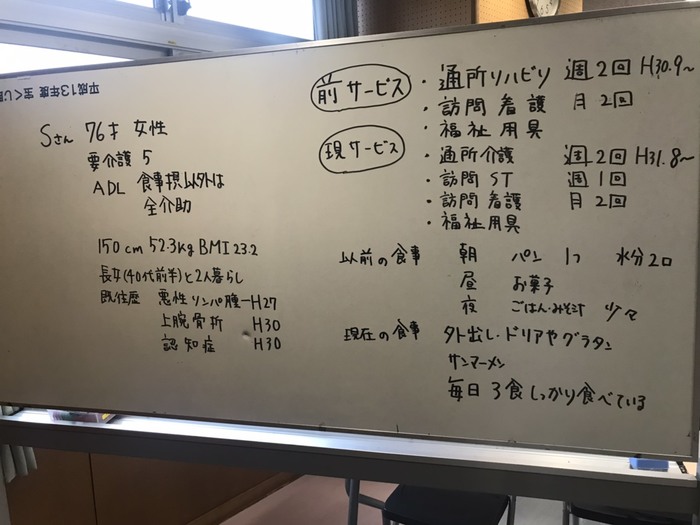 平成13年度 宝くじ
Sさん 76才 女性
要介護 5
ADL 食事摂以外は
全介助
150cm 52.3kg BMI 23.2
長女(40代前半)と2人暮らし
既往歴 悪性リンパ腫 H27
上腕骨折 H30
認知症 H30
前サービス
・通所リハビリ 週2回 H30.9~
・訪問看護 月2回
・福祉用具
現サービス
・通所介護 週2回 H31.8~
・訪問ST 週1回
・訪問看護 月2回
・福祉用具
以前の食事 朝 パン 1つ 水分2口
昼 お菓子
夜 ごはん・みそ汁 少々
現在の食事 外出し・ドリアやグラタン
サンマーメン
毎日3食しっかり食べている